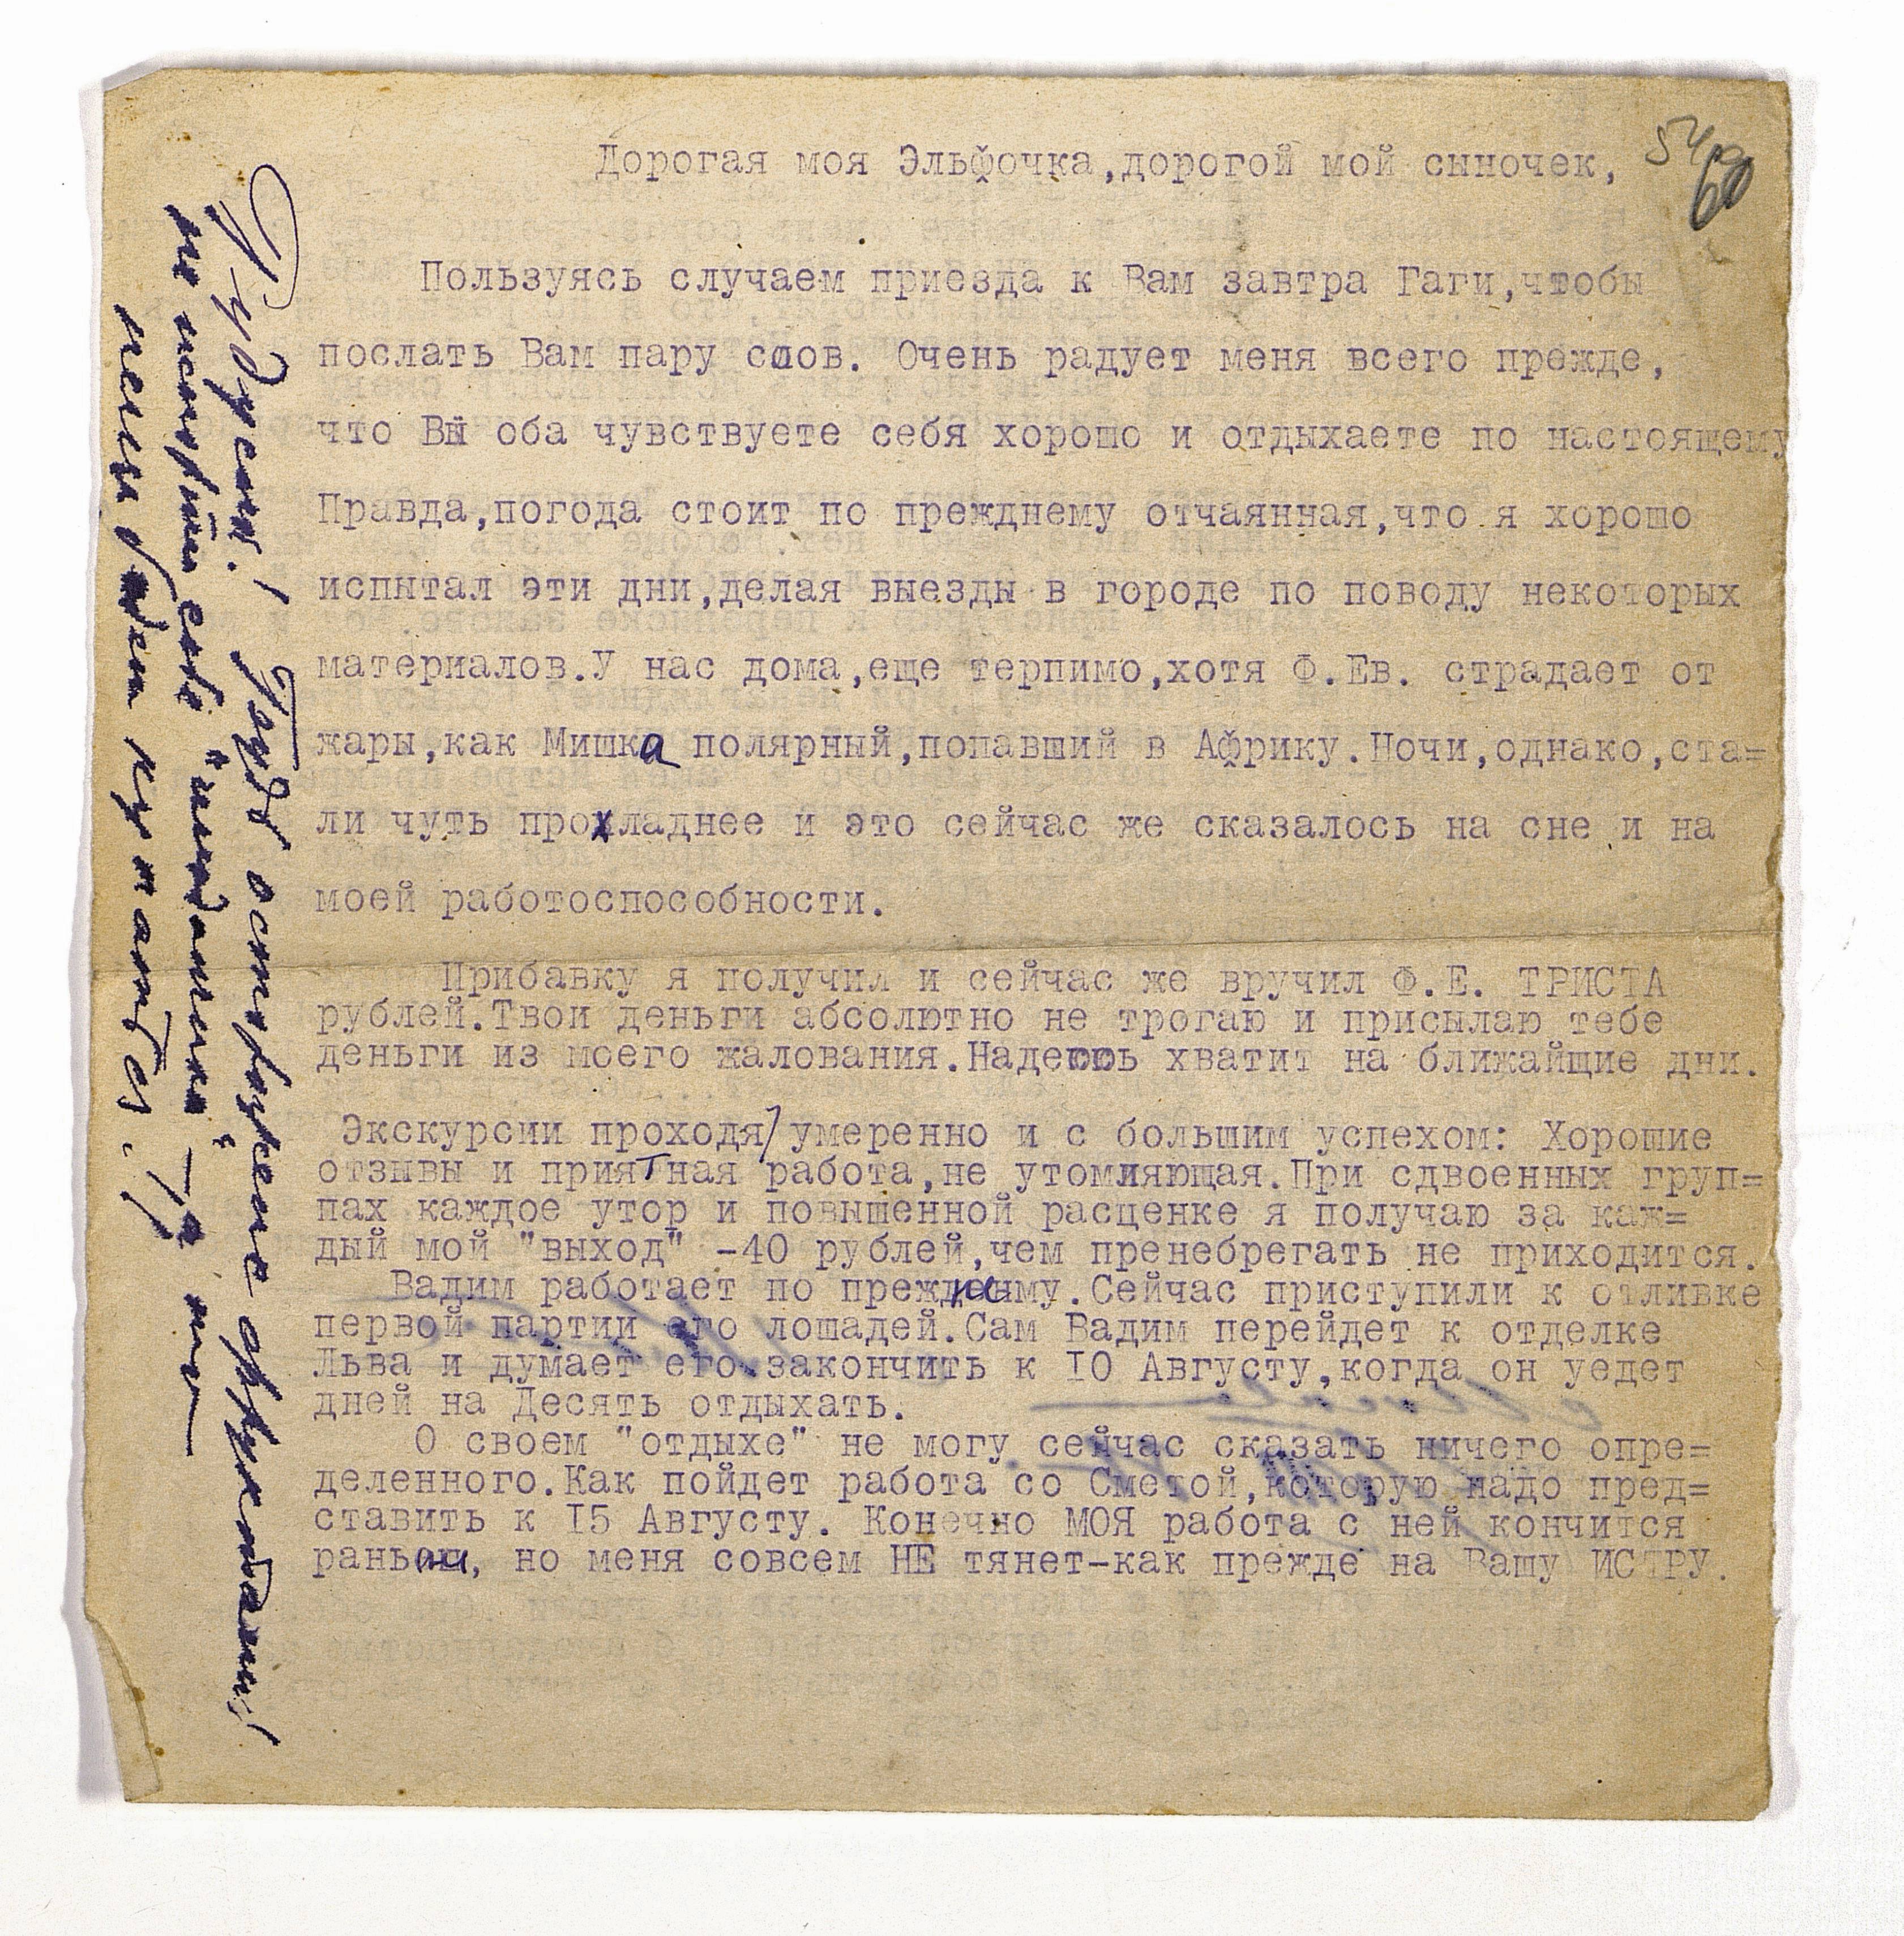 60
Дорогая моя Эльфочка,дорогой мой сыночек,
Пользуясь случаем приезда к Вам завтра Гаги,чтобы
послать Вам пару слов. Очень радует меня всего прежде,
что Вы оба чувствуете себя хорошо и отдыхаете по настоящему
Правда,погода стоит по прежднему отчаянная,что я хорошо
испытал эти дни,делая выезды в городе по поводу некоторых
материалов.У нас дома,еще терпимо,хотя Ф.Ев. страдает от
жары,как Мишка полярный,попавший в Африку.Ночи,однако,ста=
ли чуть прохладнее и это сейчас же сказалось на сне и на
моей работоспособности.
Прибавку я получил и сейчас же вручил Ф.Е. ТРИСТА
рублей.Твои деньги абсолютно не трогаю и присылаю тебе
деньги из моего жалования.Надеюсь хватит на ближайщие дни.
Экскурсии проходят умеренно и с большим успехом: Хорошие
отзывы и приятная работа,не утомияющая.При сдвоенных груп=
пах каждое утор и повышенной расценке я получаю за каж=
дый мой "выход" -40 рублей,чем пренебрегать не приходится.
Вадим работает по прежднему.Сейчас приступили к отливке
первой партии его лошадей.Сам Вадим перейдет к отделке
Льва и думает его закончить к 10 Августу,когда он уедет
дней на Десять отдыхать.
О своем "отдыхе" не могу сейчас сказать ничего опре=
деленного.Как пойдет работа со Сметой,которую надо пред=
ставить к 15 Августу. Конечно МОЯ работа с ней кончится
раньше, но меня совсем НЕ тянет-как прежде на Вашу ИСТРУ.
Рудусик! Будь осторожнее с фруктами,
не испорти себе "животика" – а то
нельзя будет купаться.